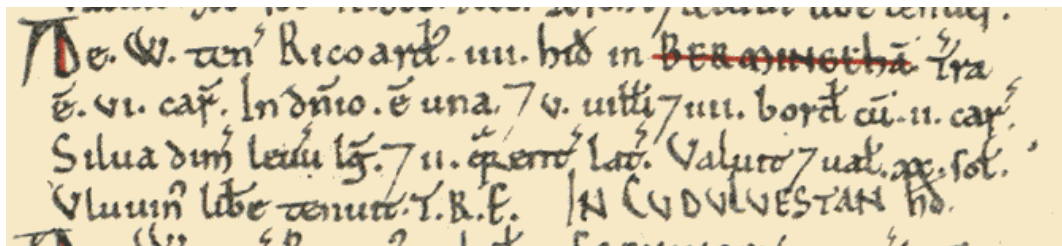 De. W. ten̄ Ricoard̄. iiii. hid̄ in BERMINGEHĀ. T̄ra
ē. vi. car̄. In dn̄io. ē una. ⁊ v. uilƚi ⁊ iiii. bord̄ cū. ii. car̄.
Silua dim̄ leuū lḡ. ⁊ ii. q̄rent̄ lat̄. Valuit ⁊ uaƚ. xx. soƚ.
Vluuin̄ liƀe tenuit. T.R.E. IN CUDULVESTAN HD̄.